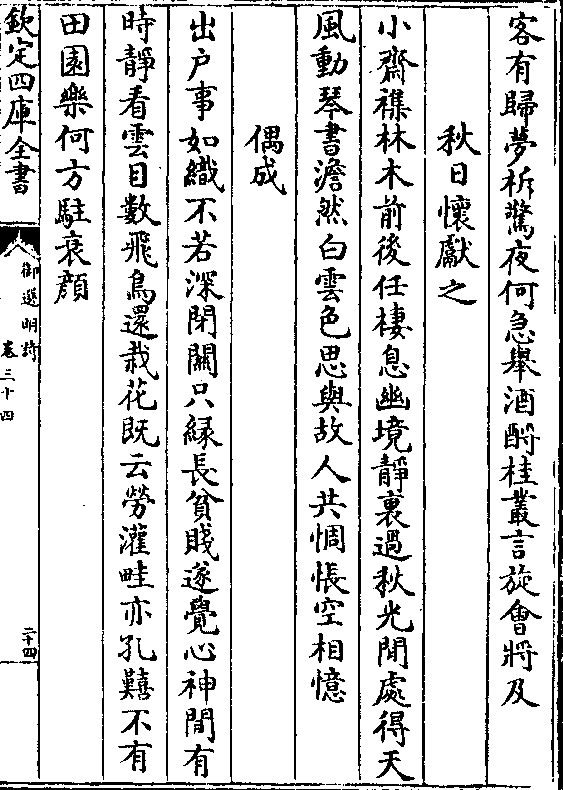 客有歸夢柝驚夜何急舉酒酹桂叢言旋會將及
秋日懷獻之
小齋襍林木前後任棲息幽境靜裏過秋光閒處得天
風動琴書澹然白雲色思與故人共惆悵空相憶
偶成
出户事如織不若深閉關只緑長貧賤遂覺心神閒有
時靜看雲目數飛鳥還栽花既云勞灌畦亦孔囏不有
田園樂何方駐衰顔
欽定四庫全書
御選明詩
卷三十四
二十四